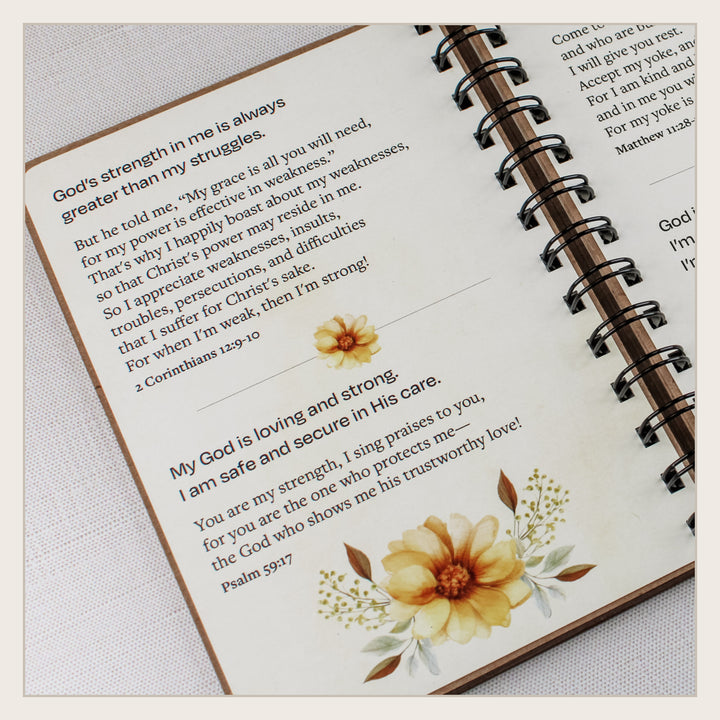 God's strength in me is always
greater than my struggles.
But he told me, “My grace is all you will need,
for my power is effective in weakness.”
That’s why I happily boast about my weaknesses,
so that Christ’s power may reside in me.
So I appreciate weaknesses, insults,
troubles, persecutions, and difficulties
that I suffer for Christ’s sake.
For when I’m weak, then I’m strong!
2 Corinthians 12:9-10
My God is loving and strong.
I am safe and secure in His care.
You are my strength, I sing praises to you,
for you are the one who protects me—
the God who shows me his trustworthy love!
Psalm 59:17
Come
and who are
I will give you rest.
Accept my yoke,
For I am kind and
and in me you
For my yoke is
Matthew 11:28-
God
I'm